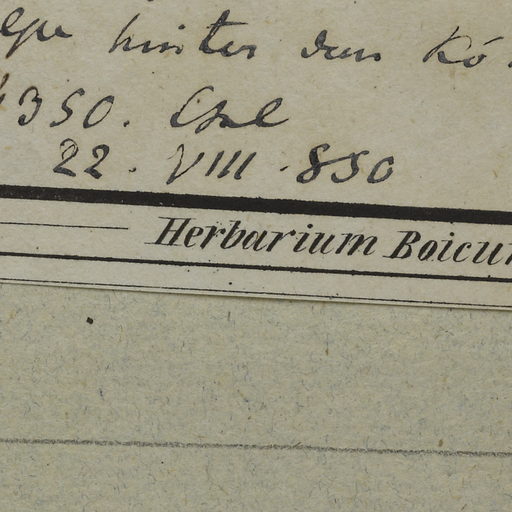 hinter dem Kö
350.
22. VIII. 850
Herbarium Boicu